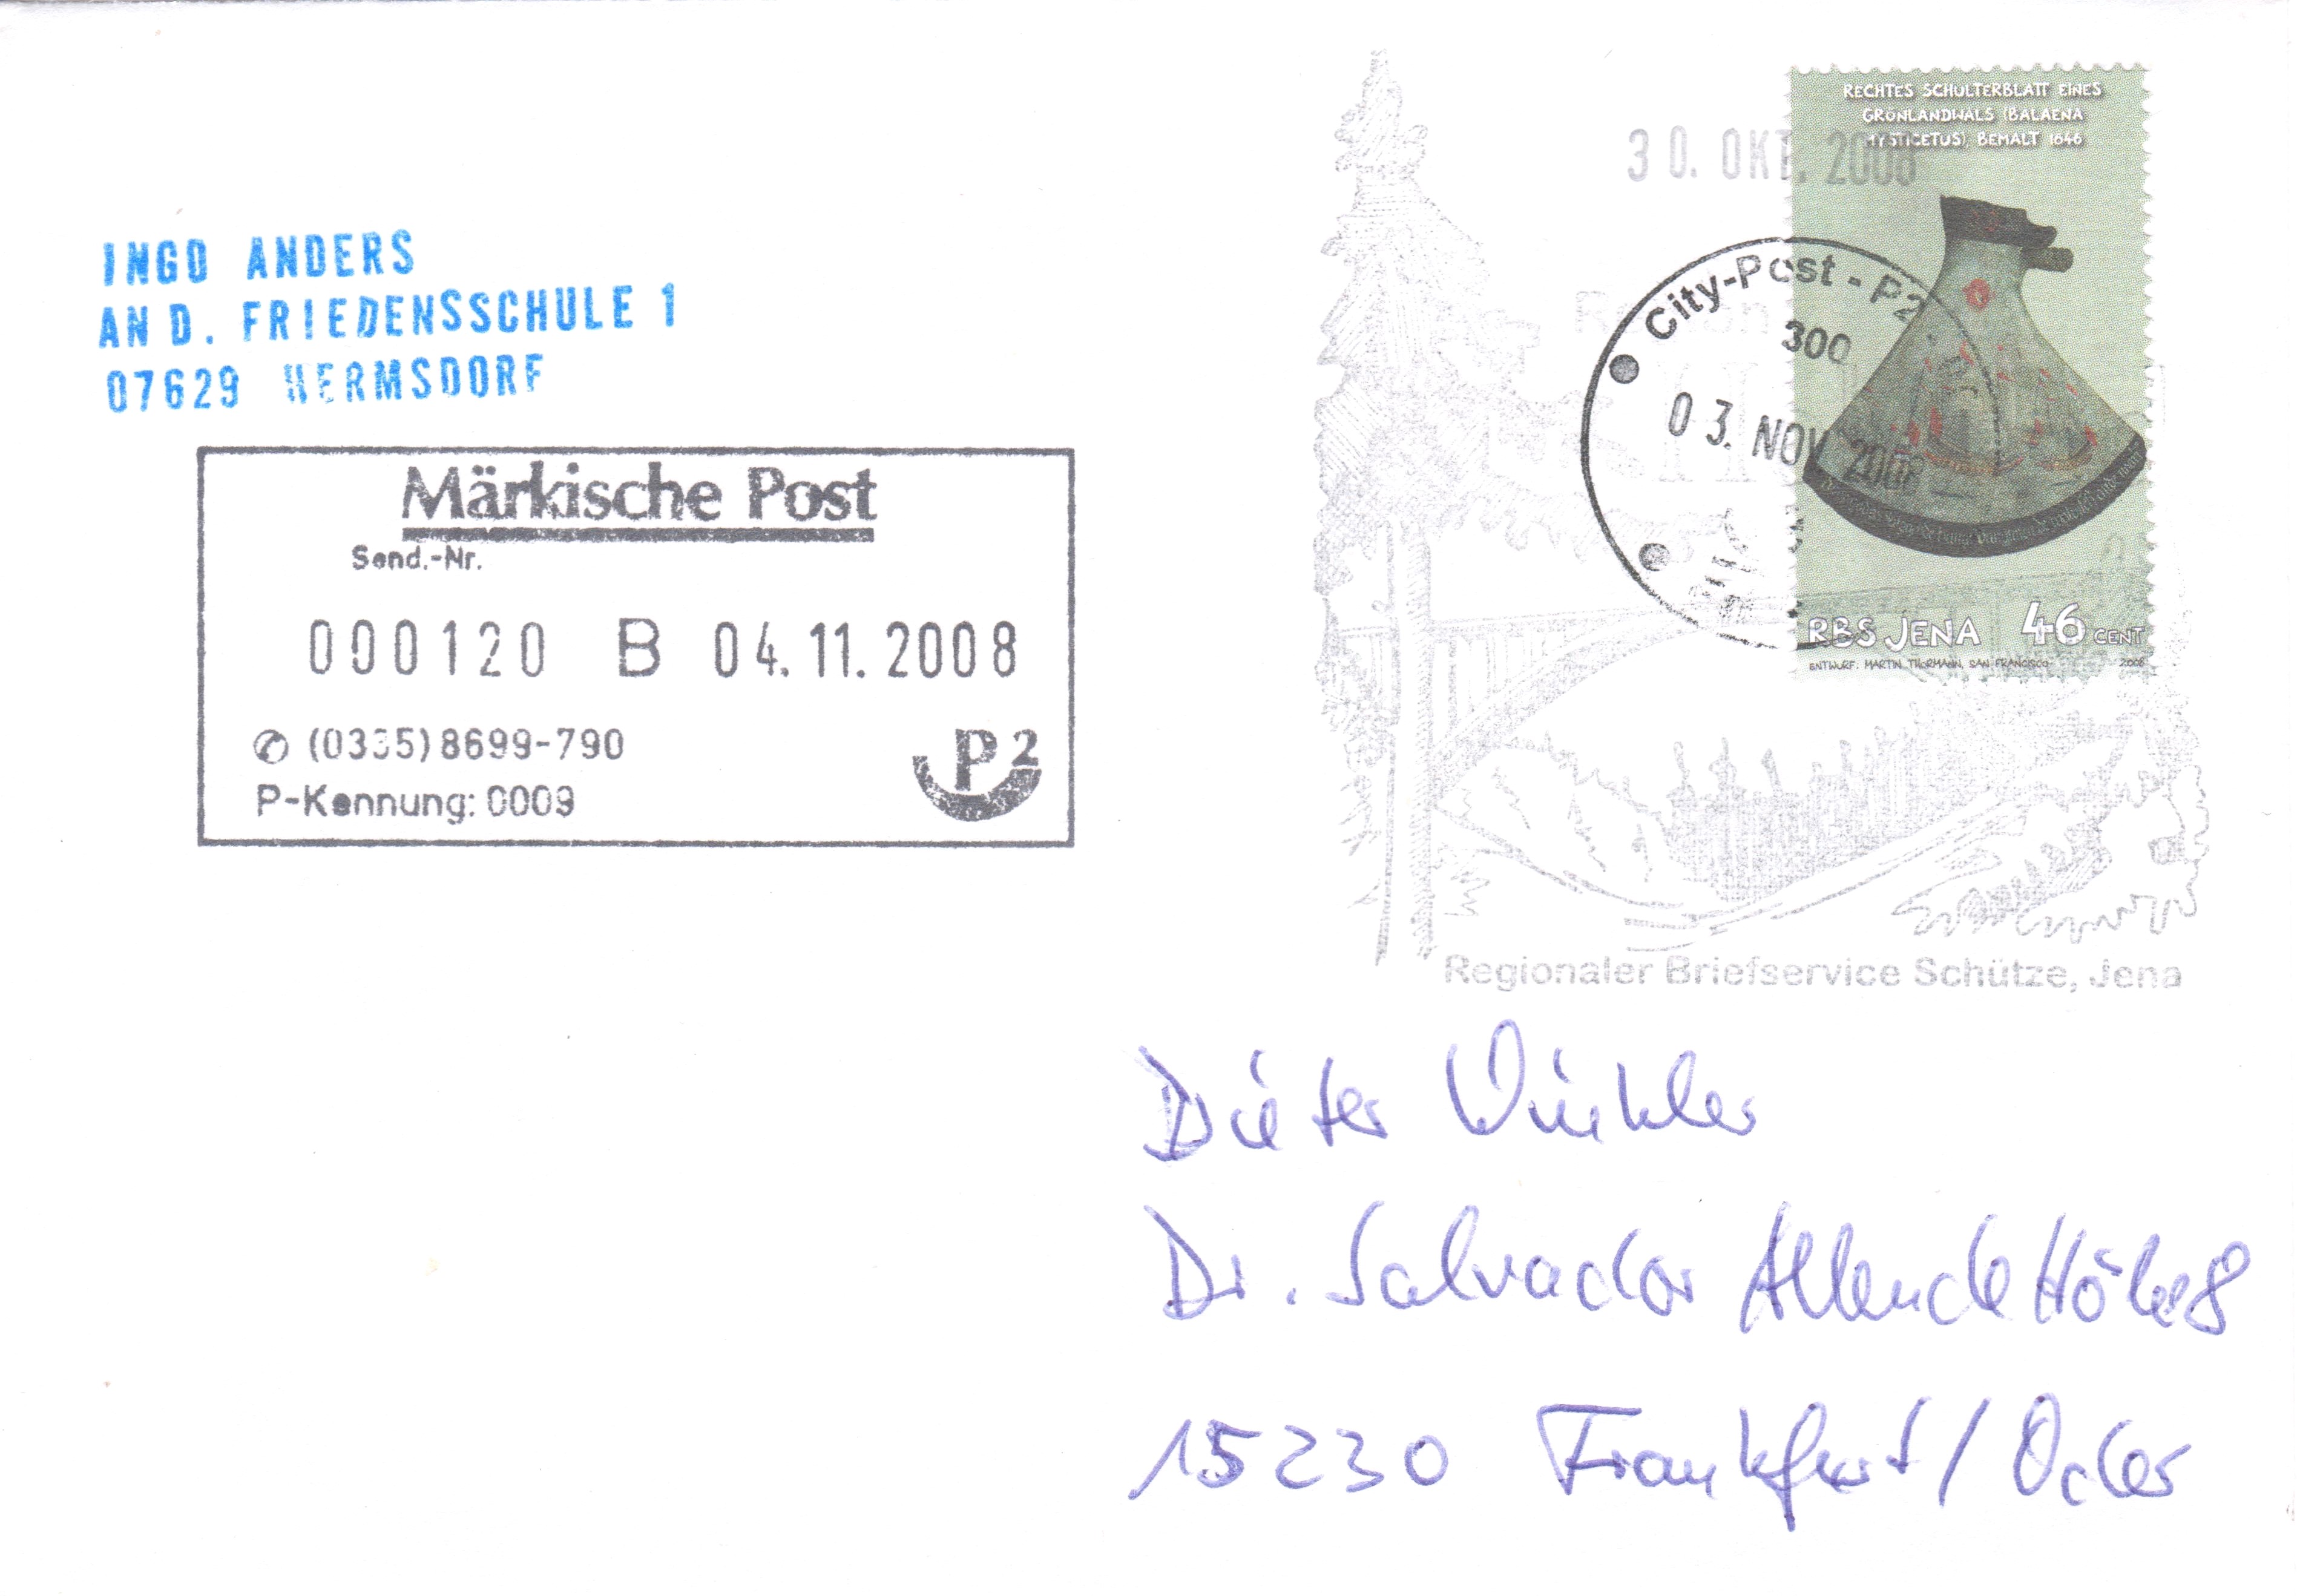 INGO ANDERS
AN D. FRIEDENSSCHULE 1
07629 HERMSDORF
Märkische Post
Send.-Nr.
000120 B 04.11.2008
✆ (0335) 8699-790
P-Kennung: 0009
P2
RECHTES SCHULTERBLATT EINES
GRÖNLANDWALS (BALAENA
MYSTICETUS), BEMALT 1646
30. OKT. 2008
City-Post - P2
300
03. NOV 2008
RBS JENA 46 CENT
ENTWURF: MARTIN THORMANN, SAN FRANCISCO 2008
Regionaler Briefservice Schütze, Jena
Dieter Winkler
Dr. Salvador Allende Höhe 8
15230 Frankfurt/Oder